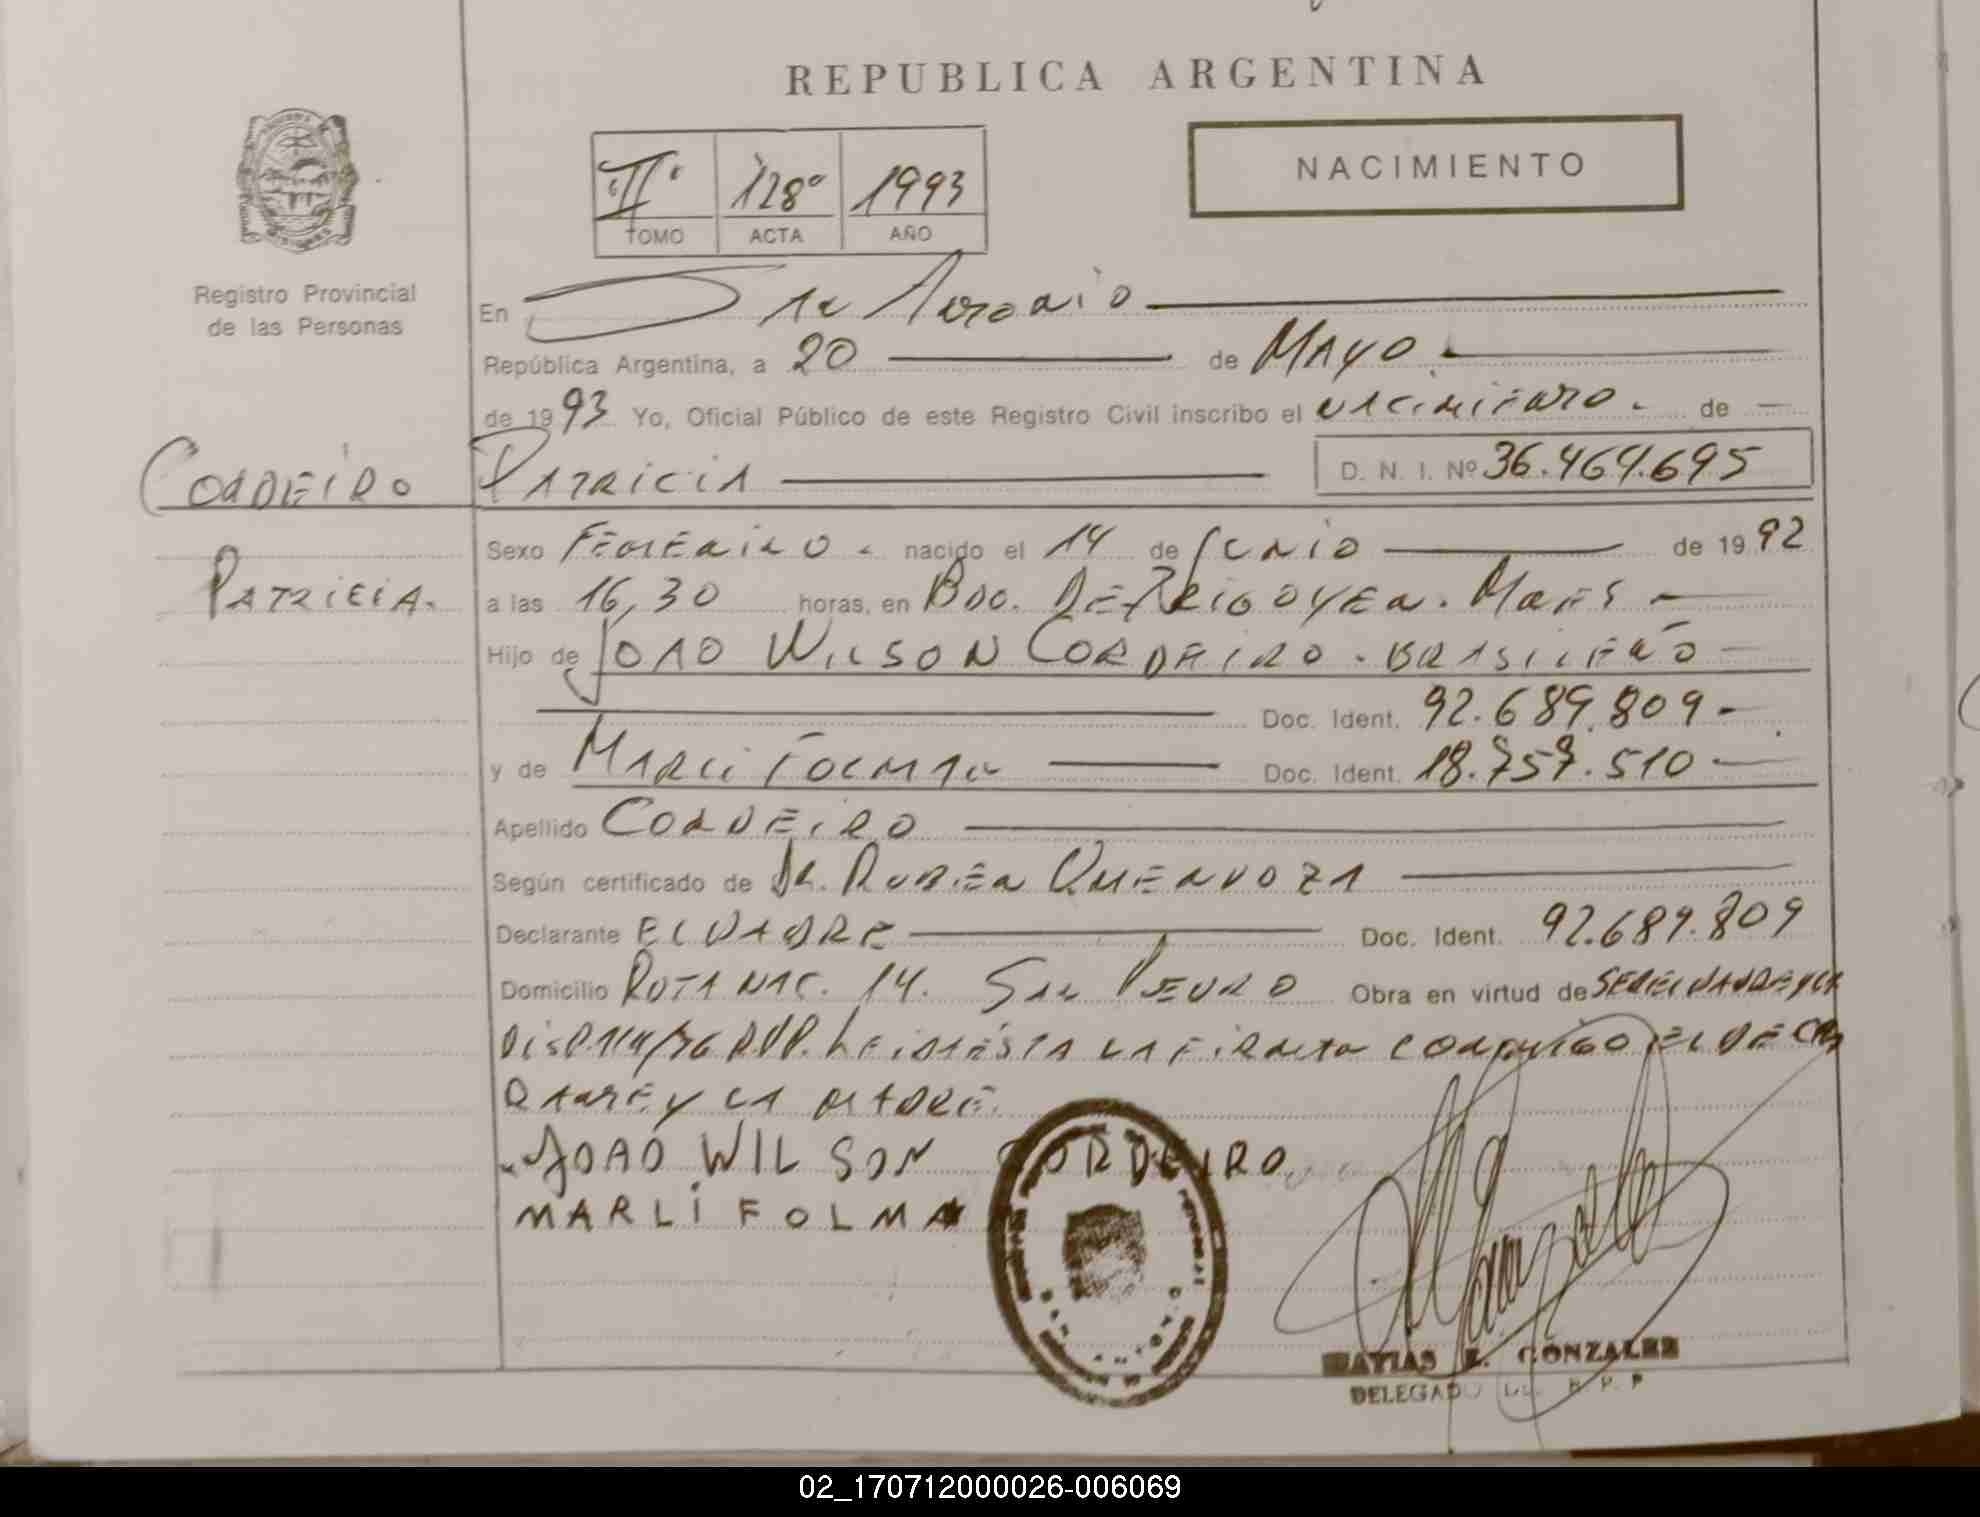 REPUBLICA ARGENTINA
NACIMIENTO
"II" 128º 1993
TOMO ACTA AÑO
Registro Provincial
de las Personas
En San Antonio
República Argentina, a 20 de MAYO.
de 1993 Yo, Oficial Público de este Registro Civil inscribo el nacimiento. de
CORDEIRO PATRICIA D. N. I. Nº 36.464.695
PATRICIA.
Sexo FEMENINO. nacido el 14 de JUNIO de 1992
a las 16,30 horas, en Bdo. DE IRIGOYEN. Mnes
Hijo de JOAO WILSON CORDEIRO. BRASILEÑO
Doc. Ident. 92.689.809
y de MARLI FOLMAN Doc. Ident. 18.757.510
Apellido CORDEIRO
Según certificado de DR. RUBEN OMENDOZA
Declarante EL PADRE Doc. Ident. 92.689.809
Domicilio RUTA NAC. 14. SAN PEDRO Obra en virtud de SER EL PADRE Y LA
DISP. /76 R.P.P. LEIDA ESTA LA FIRMAN CONMIGO EL DECLA
RANTE Y LA MADRE.
JOAO WILSON CORDEIRO
MARLI FOLMA
MATIAS E. GONZALEZ
DELEGADO R. P. P
02_170712000026-006069